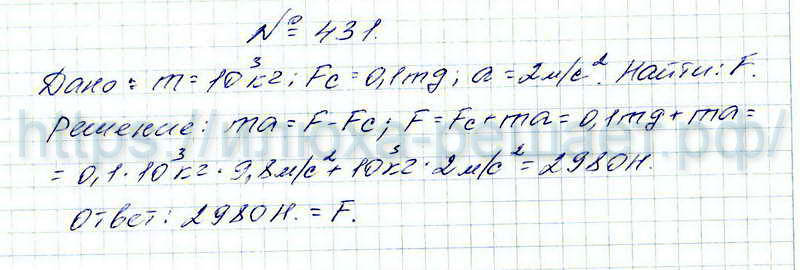 № 431.
Дано: m = 10³кг; Fc = 0,1mg; a = 2м/с². Найти: F.
Решение: ma = F - Fc; F = Fc + ma = 0,1mg + ma =
= 0,1 · 10³кг · 9,8м/с² + 10³кг · 2м/с² = 2980Н.
Ответ: 2980Н. = F.